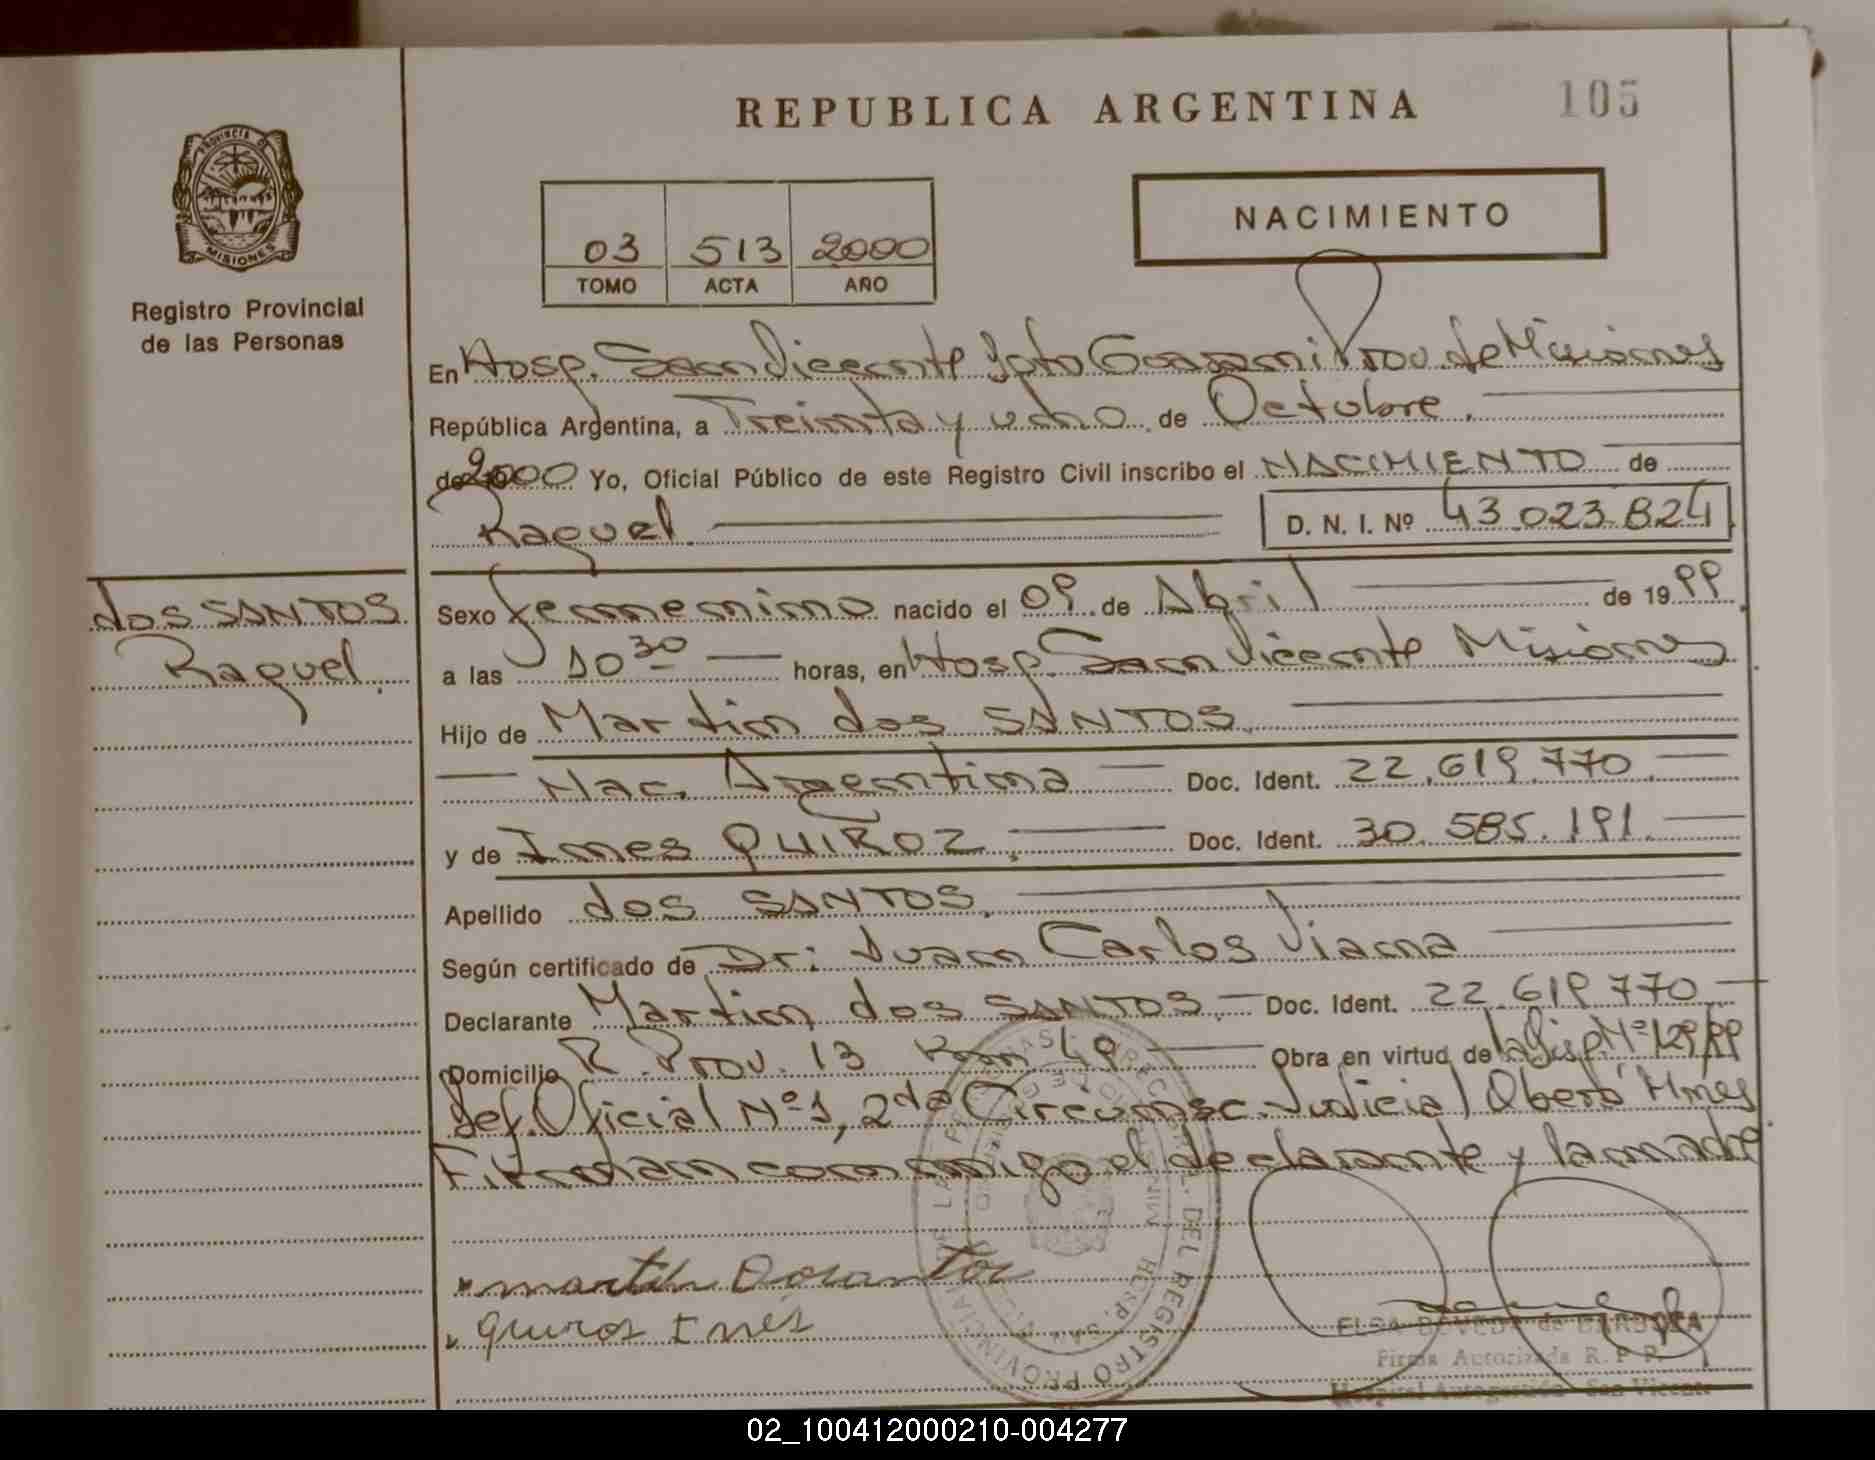 REPUBLICA ARGENTINA
105
PROVINCIA DE
MISIONES
Registro Provincial
de las Personas
03 513 2000
TOMO ACTA AÑO
NACIMIENTO
En Hosp. San Vicente Dpto Guaraní Prov. de Misiones
República Argentina, a Treinta y uno de Octubre.
de 2000 Yo, Oficial Público de este Registro Civil inscribo el NACIMIENTO de
Raquel.
D. N. I. Nº 43.023.824
dos SANTOS
Raquel.
Sexo femenino nacido el 09 de Abril de 1999.
a las 10 30 horas, en Hosp. San Vicente Misiones
Hijo de Martin dos SANTOS.
Nac. Argentina Doc. Ident. 22.619.770.
y de Ines QUIROZ. Doc. Ident. 30.585.191.
Apellido dos SANTOS.
Según certificado de Dr: Juan Carlos Viana
Declarante Martin dos SANTOS. Doc. Ident. 22.619.770
Domicilio R. Prov. 13 Km 49 Obra en virtud de la Disp. Nº 129/99
Def. Oficial Nº 1, 2da Circunsc. Judicial Oberá Mnes
Firman conmigo el declarante y la madre
martin Dosantos
quiros Inés
DEL REGISTRO PROVINCIAL DE LAS PERSONAS
ELSA de BARBOZA
Firma Autorizada R. P. P.
Hospital Autogestión San Vicente
02_100412000210-004277